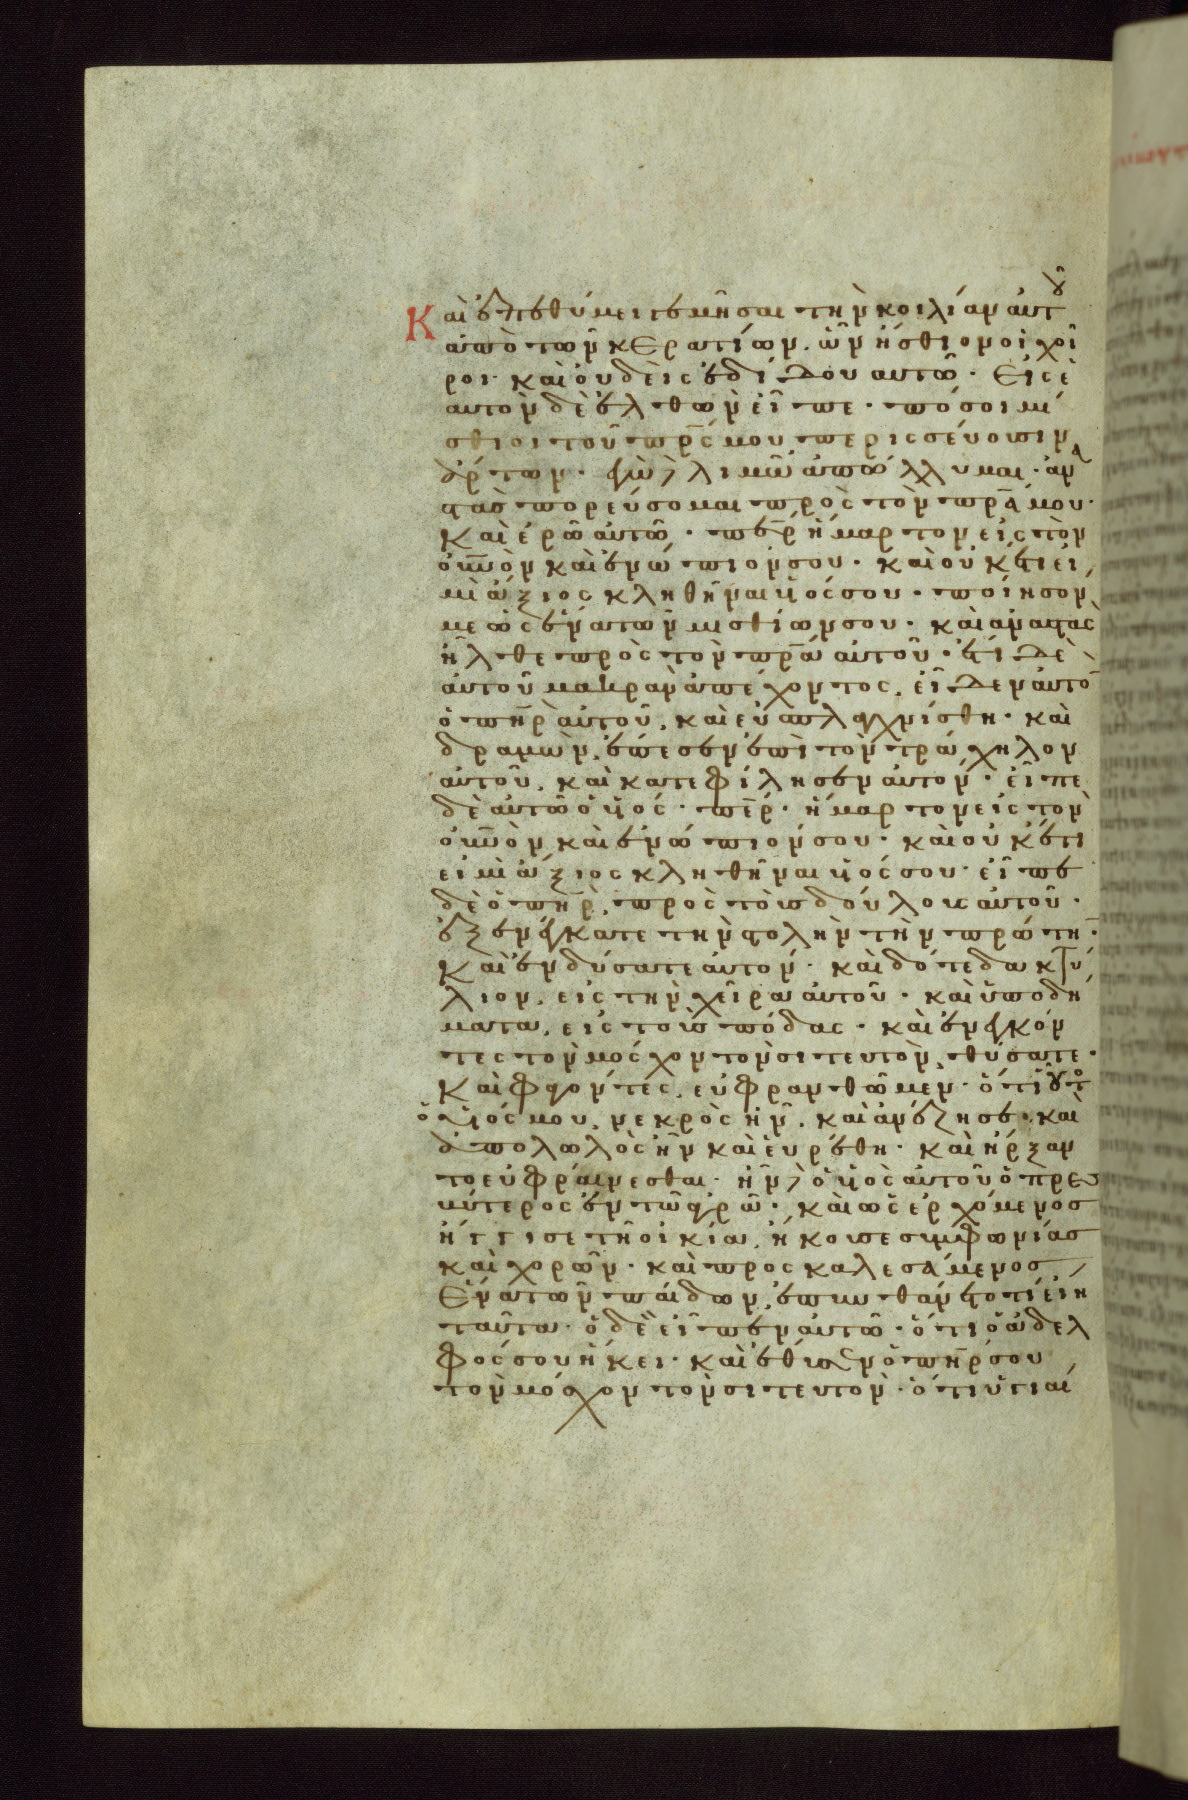 Καὶ ἐπεθύμει γεμῆσαι τὴν κοιλίαν αὐτοῦ
ἀπὸ τῶν κερατίων, ὧν ἤσθιον οἱ χοῖ
ροι· καὶ οὐδεὶς ἐδίδου αὐτῶ· Εἰς ἑ
αυτὸν δὲ ἐλθὼν εἶπε· πόσοι μί
σθιοι τοῦ πρς μου περισσεύουσιν
ἄρτων· ἐγὼ δὲ λιμῶ ἀπόλλυμαι· ἀνα
στὰς πορεύσομαι πρὸς τὸν πρα μου·
Καὶ ἐρῶ αὐτῶ· περ ἥμαρτον εἰς τὸν
οὐνὸν καὶ ἐνώπιόν σου· καὶ οὐκέτι εἰ
μὶ ἄξιος κληθῆναι υἱός σου· ποίησόν
με ὡς ἕνα τῶν μισθίων σου· καὶ ἀναστὰς
ἦλθε πρὸς τὸν πρα αὐτοῦ· ἔτι δὲ
αὐτοῦ μακρὰν ἀπέχοντος, εἶδεν αὐτὸ
ὁ πηρ αὐτοῦ, καὶ εὐσπλαγχνίσθη· καὶ
δραμὼν, ἐπέσεν ἐπὶ τὸν τράχηλον
αὐτοῦ, καὶ κατεφίλησεν αὐτόν· εἶπε
δὲ αὐτῶ ὁ υἱός· περ· ἥμαρτον εἰς τὸν
οὐνὸν καὶ ἐνώπιόν σου· καὶ οὐκέτι
εἰμὶ ἄξιος κληθῆναι υἱός σου· εἶπε
δὲ ὁ πηρ, πρὸς τοὺς δούλους αὐτοῦ·
ἐξενέγκατε τὴν στολὴν τὴν πρώτη·
Καὶ ἐνδύσατε αὐτόν· καὶ δότε δακτύ
λιον, εἰς τὴν χεῖρα αὐτοῦ· καὶ ὑποδή
ματα, εἰς τοὺς πόδας· καὶ ἐνέγκόν
τες τὸν μόσχον τὸν σιτευτὸν, θύσατε·
Καὶ φαγόντες, εὐφρανθῶμεν· ὅτι οὗτο
ὁ υἱός μου, νεκρὸς ἦν, καὶ ἀνέζησε· καὶ
ἀπολωλὸς ἦν καὶ εὑρέθη· καὶ ἤρξαν
το εὐφραίνεσθαι· ἦν δὲ ὁ υἱὸς αὐτοῦ ὁ πρεσ
βύτερος ἐν τῶ ἀγρῶ· καὶ ὡς ἐρχόμενος
ἤγγισε τῆ οἰκία, ἤκουσε συμφωνίας
καὶ χορῶν· καὶ προσκαλεσάμενος
Ἕνα τῶν παίδων, ἐπυνθάνετο τί εἴη
ταῦτα· ὁ δὲ εἶπεν αὐτῶ· ὅτι ὁ ἀδελ
φός σου ἥκει· καὶ ἔθυσεν ὁ πηρ σου
τὸν μόσχον τὸν σιτευτὸν· ὅτι ὑγιαί